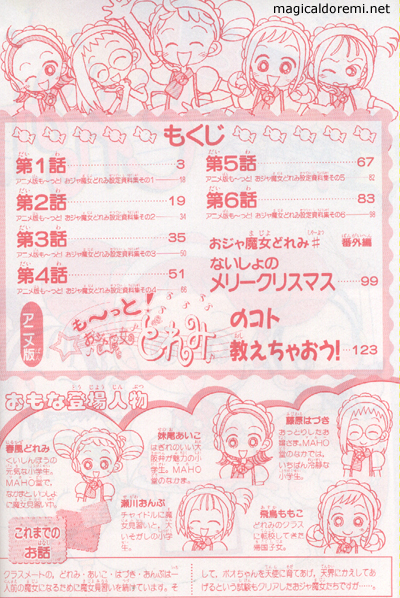 magicaldoremi.net
もくじ
第1話 3
アニメ版も〜っと!おジャ魔女どれみ設定資料集その1 18
第2話 19
アニメ版も〜っと!おジャ魔女どれみ設定資料集その2 34
第3話 35
アニメ版も〜っと!おジャ魔女どれみ設定資料集その3 50
第4話 51
アニメ版も〜っと!おジャ魔女どれみ設定資料集その4 66
第5話 67
アニメ版も〜っと!おジャ魔女どれみ設定資料集その5 82
第6話 83
アニメ版も〜っと!おジャ魔女どれみ設定資料集その6 98
おジャ魔女どれみ♯ 番外編
ないしょの
メリークリスマス 99
アニメ版
も〜っと!
おジャ魔女
どれみ
のコト
教えちゃおう! 123
おもな登場人物
春風どれみ
くいしんぼうの
元気な小学生。
MAHO堂で、
なかまといっしょ
に魔女見習い中。
妹尾あいこ
はぎれのいい大
阪弁が魅力の小
学生。MAHO
堂のなかま。
藤原はづき
おっとりしたお
嬢さま。MAHO
堂のなかまでは、
いちばん冷静な
小学生。
瀬川おんぷ
チャイドルに魔
女見習いと、大
いそがしの小学
生。
飛鳥ももこ
どれみのクラス
に転校してきた
帰国子女。
これまでの
お話
クラスメートの、どれみ・あいこ・はづき・おんぷは一
人前の魔女になるために魔女見習いを続けています。そ
して、ポオちゃんを天使に育てあげ、天界にかえしてあ
げるという試験もクリアしたおジャ魔女たちですが……。